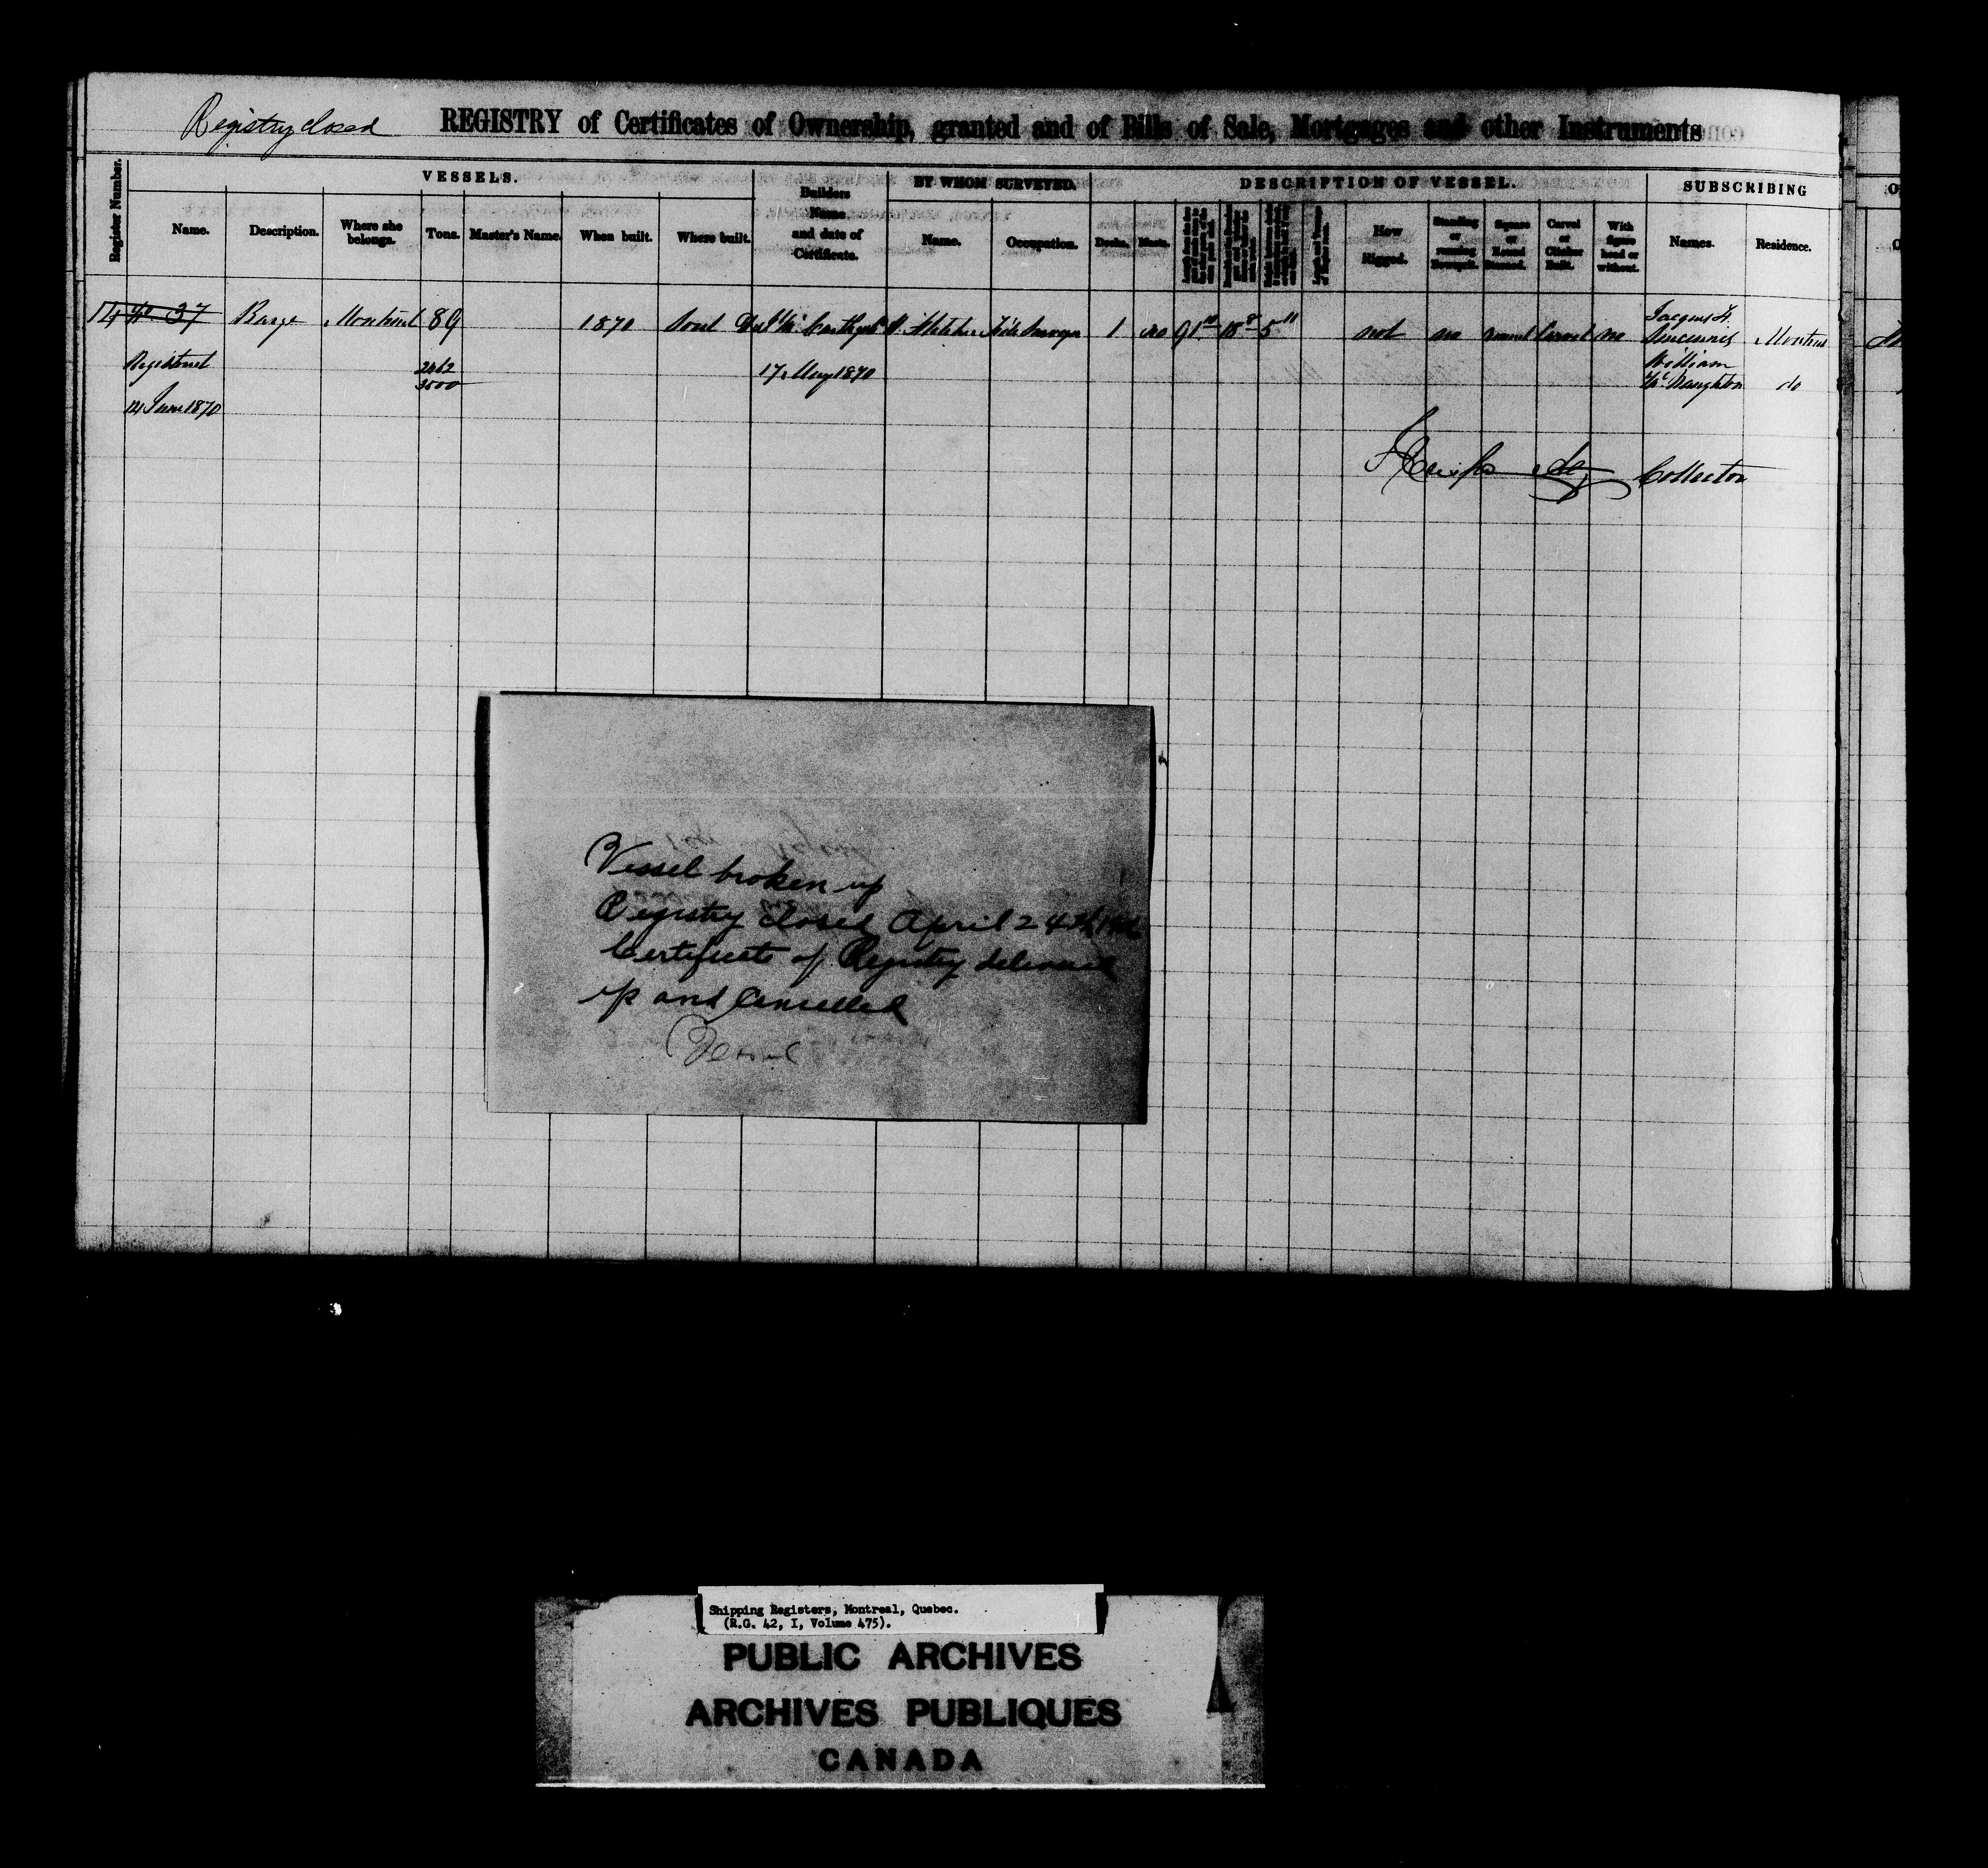 Registry closed
REGISTRY of Certificates of Ownership, granted and of Bills of Sale, Mortgages and other Instruments
VESSELS.
BY WHOM SURVEYED.
DESCRIPTION OF VESSEL.
SUBSCRIBING
Register Number.
Name.
Description.
Where she belongs.
Tons.
Master's Name.
When built.
Where built.
Builders Name and date of Certificate.
Name.
Occupation.
Decks.
Masts.
How Rigged.
Standing or running Bowsprit.
Square or Round Sterned.
Carvel or Clincher Built.
With figure head or without.
Names.
Residence.
14 No. 37 Barge Montreal 89 1870 Sorel McCarthy 1 no 91 10 18 8 5 11 not no round Carvel no Jacques F. Sincennes Montreal
Registered 2462 17 May 1870 William
3500 McNaughton do
14 June 1870
Collector
Vessel broken up
Registry closed April 24th
Certificate of Registry delivered
up and Cancelled
Vessel
Shipping Registers, Montreal, Quebec.
(R.G. 42, I, Volume 475).
PUBLIC ARCHIVES
ARCHIVES PUBLIQUES
CANADA